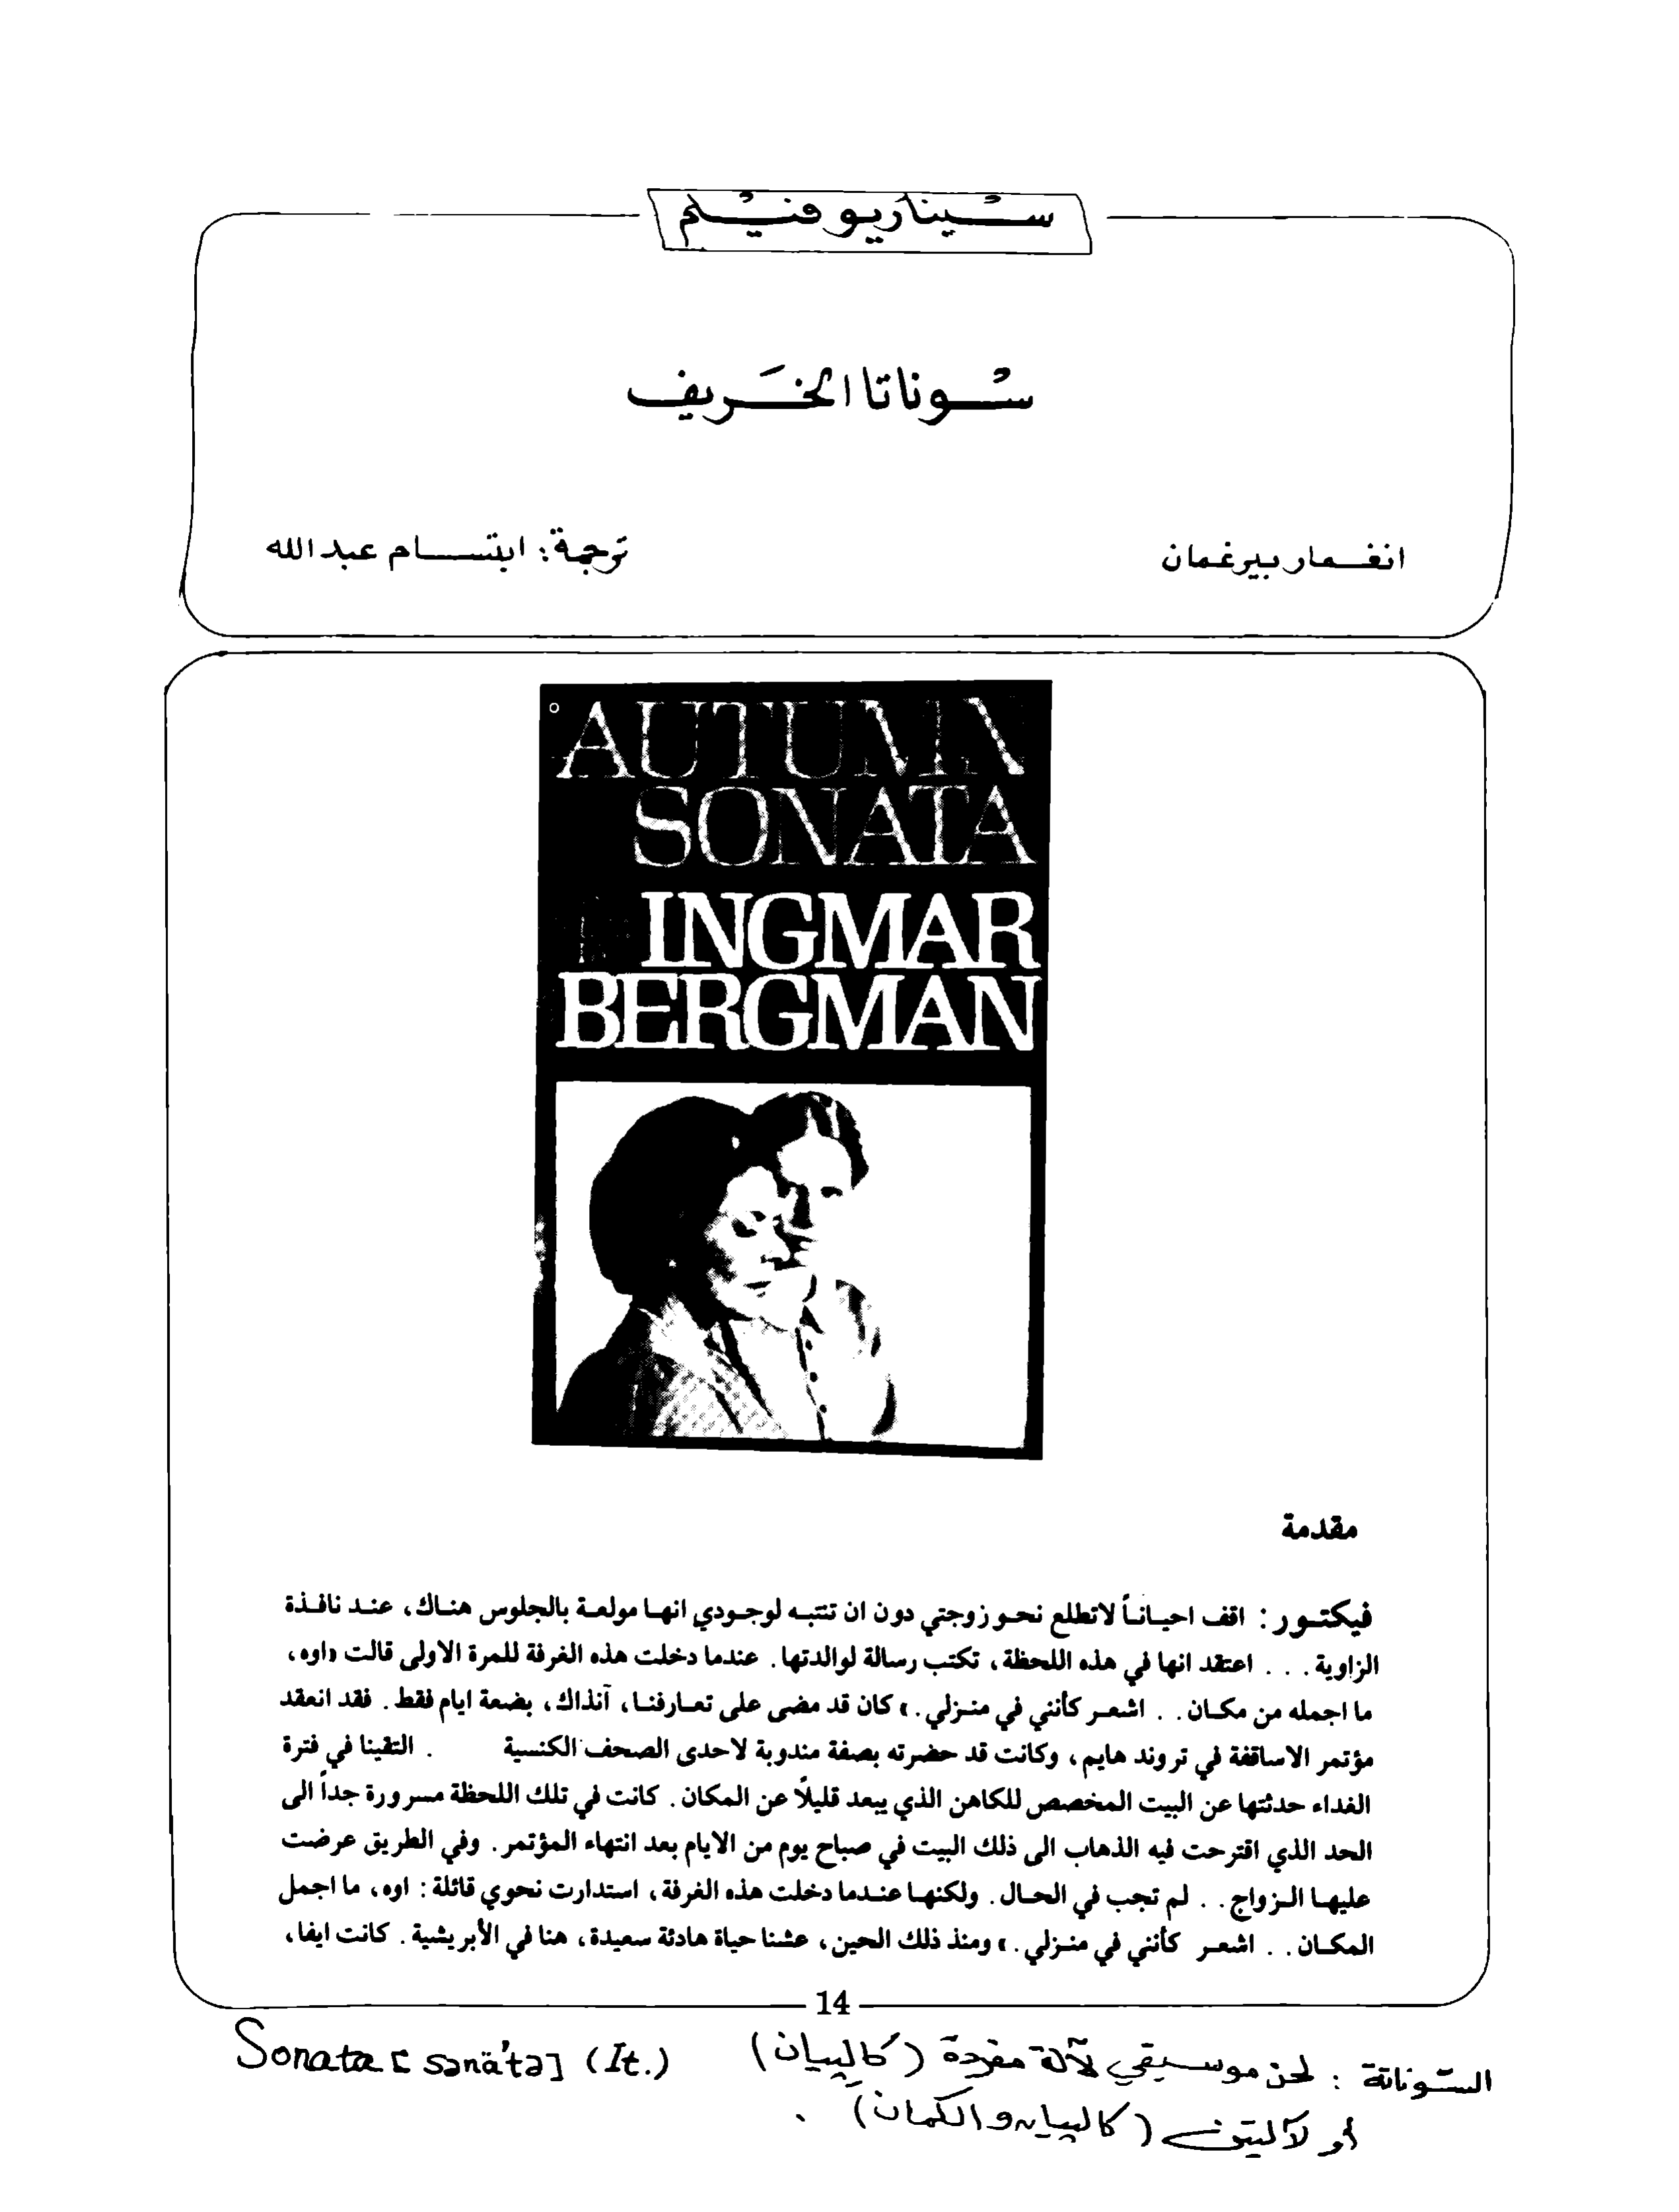 سيناريو فيلم
سوناتا الخريف
انغمار بيرغمان
ترجمة: ابتسام عبد الله
AUTUMN
SONATA
INGMAR
BERGMAN
مقدمة
فيكتور: اقف احياناً لاتطلع نحو زوجتي دون ان تنتبه لوجودي انها مولعة بالجلوس هناك، عند نافذة
الزاوية... اعتقد انها في هذه اللحظة، تكتب رسالة لوالدتها. عندما دخلت هذه الغرفة للمرة الاولى قالت «اوه،
ما اجمله من مكان.. اشعر كأنني في منزلي.» كان قد مضى على تعارفنا، آنذاك، بضعة ايام فقط. فقد انعقد
مؤتمر الاساقفة في تروند هايم، وكانت قد حضرته بصفة مندوبة لاحدى الصحف الكنسية . التقينا في فترة
الغداء حدثتها عن البيت المخصص للكاهن الذي يبعد قليلاً عن المكان. كانت في تلك اللحظة مسرورة جداً الى
الحد الذي اقترحت فيه الذهاب الى ذلك البيت في صباح يوم من الايام بعد انتهاء المؤتمر. وفي الطريق عرضت
عليها الزواج.. لم تجب في الحال. ولكنها عندما دخلت هذه الغرفة، استدارت نحوي قائلة: اوه، ما اجمل
المكان.. اشعر كأنني في منزلي.» ومنذ ذلك الحين، عشنا حياة هادئة سعيدة، هنا في الأبريشية. كانت ايفا،
14
السّوناتة : لحن موسيقي لآلة مفردة (كالپيان) Sonata [sənä'tə] (It.)
أو لآلتين (كالپيان والكمان).